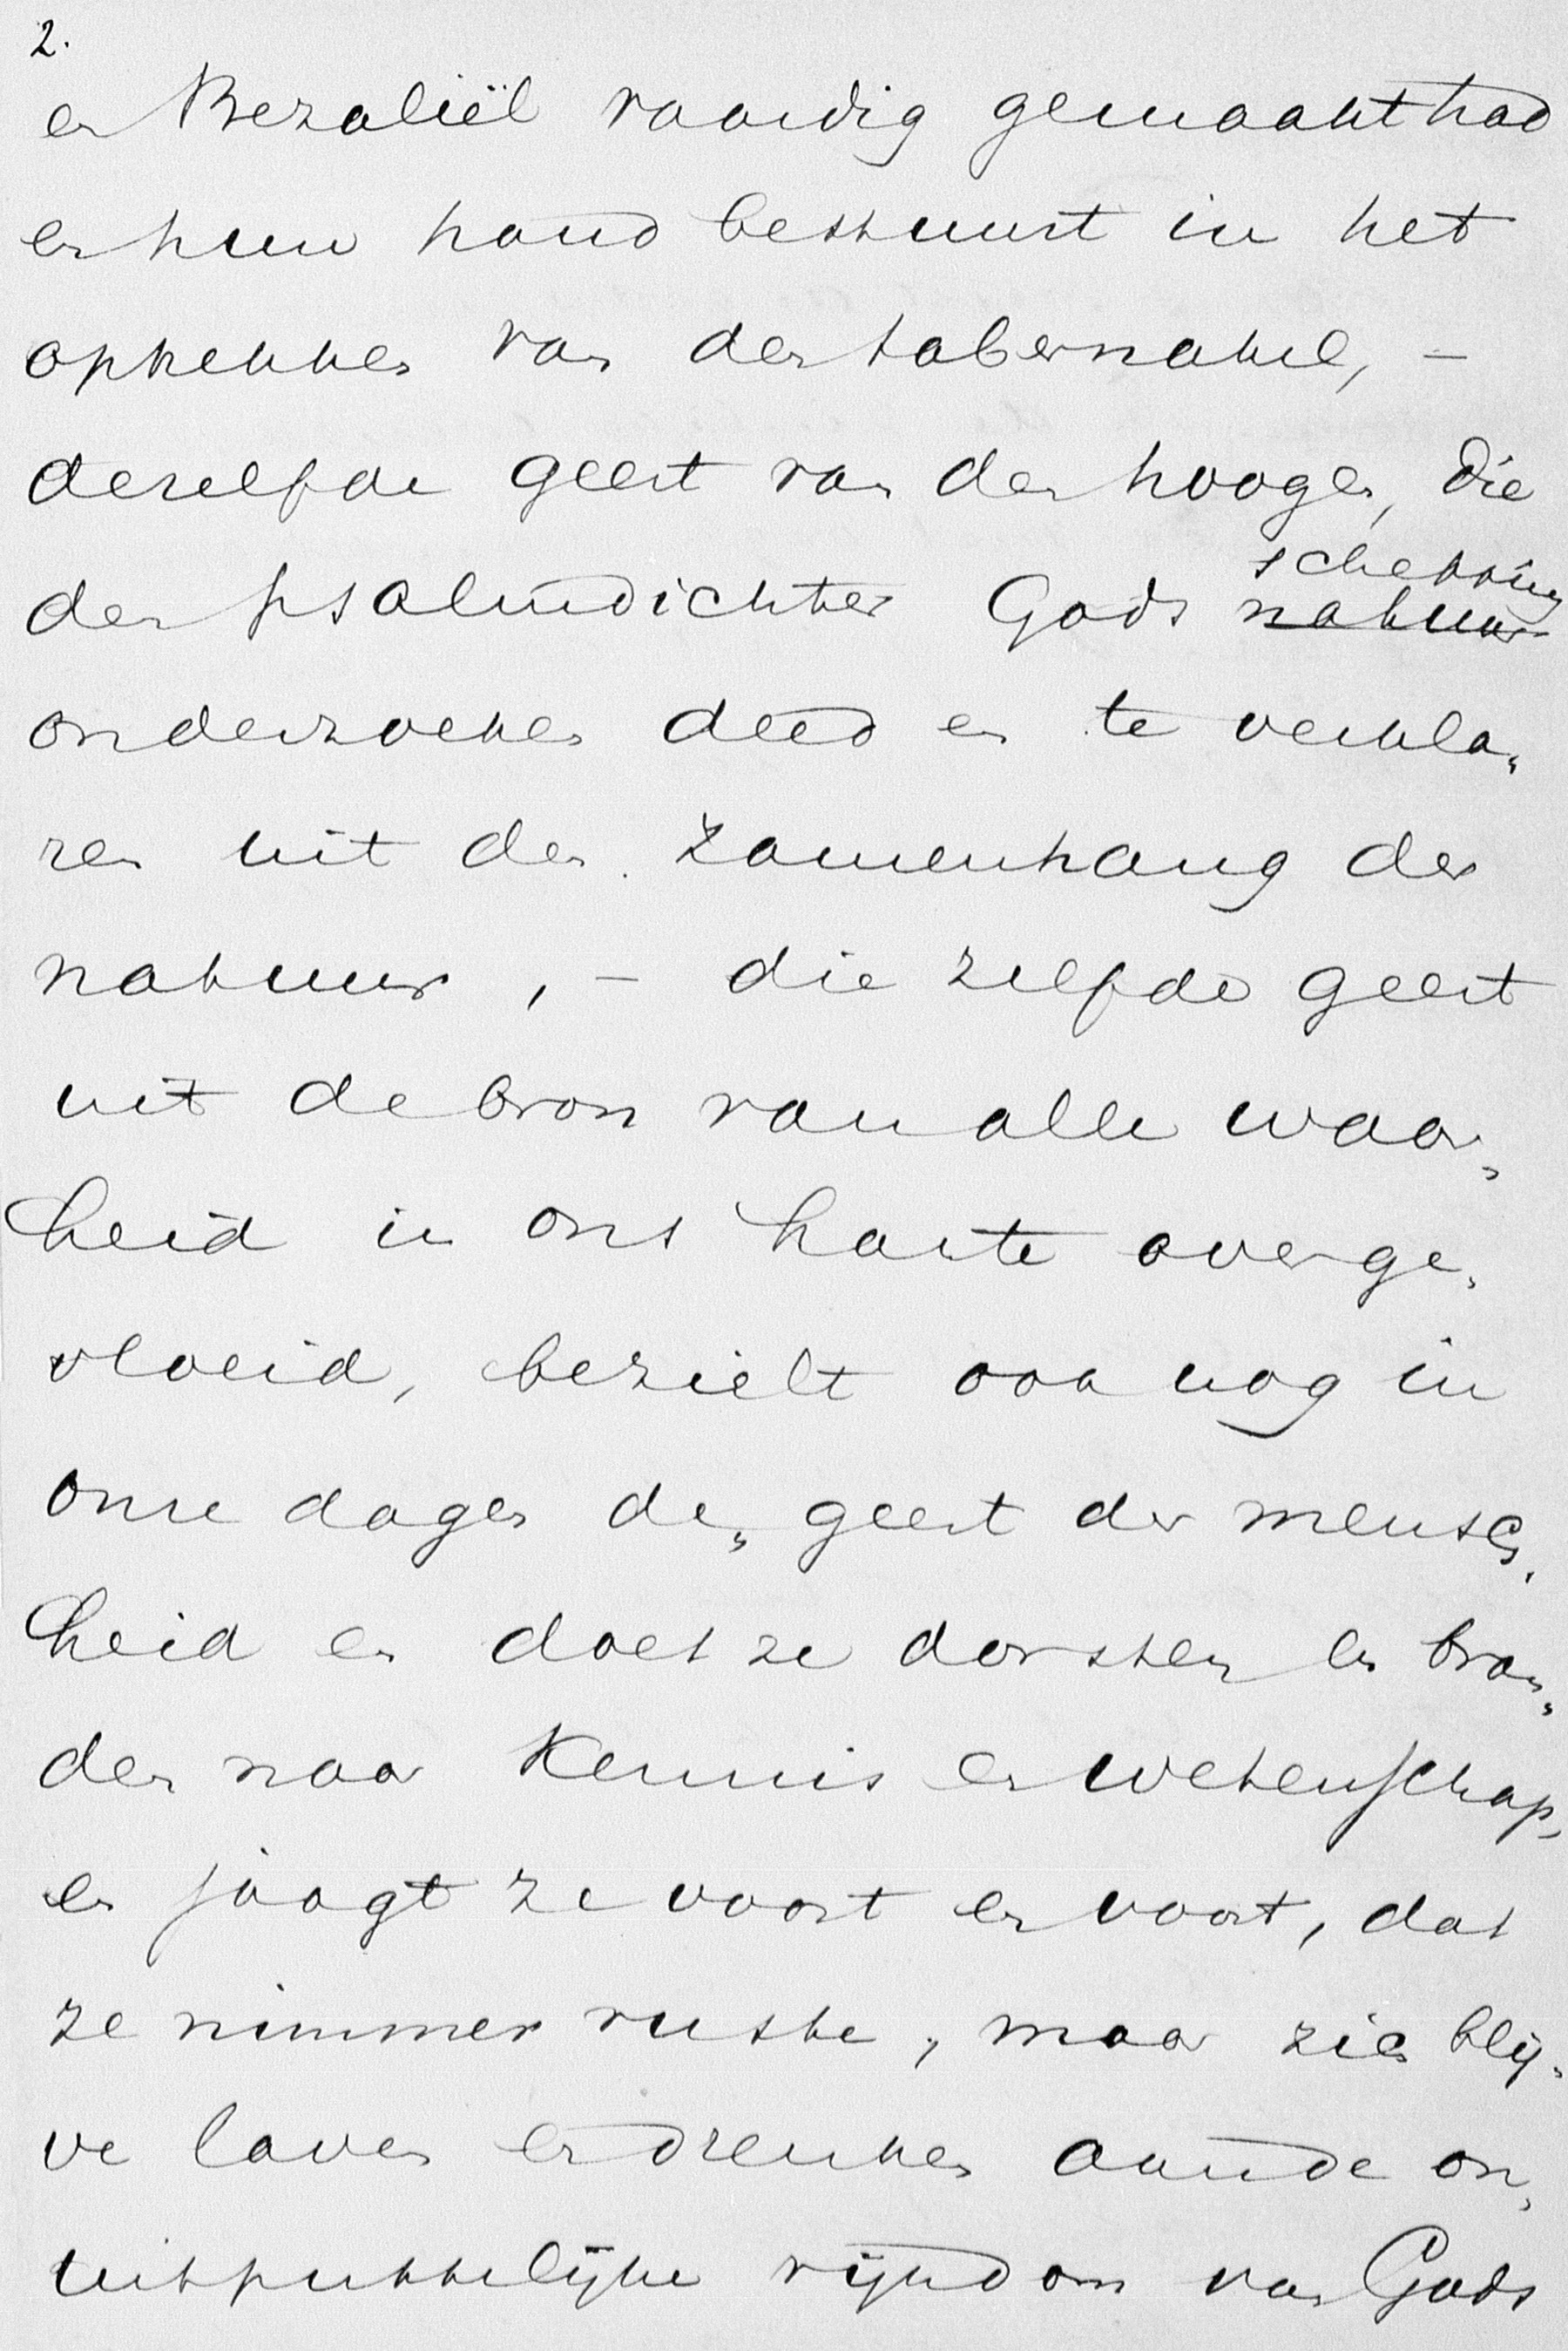 2.
en Bezaliël vaardig gemaakt had
en hun hand bestuurt in het
optrekken van den tabernakel, –
dezelfde geest van den hoogen, die
den psalmdichter Gods schepping natuur
onderzoeken deed en te verkla„
ren uit den zamenhang der
natuur, – die zelfde geest
uit de bron van alle waar„
heid in ons harte overge„
vloeid, bezielt ook nog in
onze dagen de„ geest der mensch„
heid en doet ze dorsten en bran„
den naar kennis en wetenschap,
en jaagt ze voort en voort, dat
ze nimmer ruste, maar zich blij„
ve laven en drenken aan de on„
uitputtelijke rijkdom van Gods